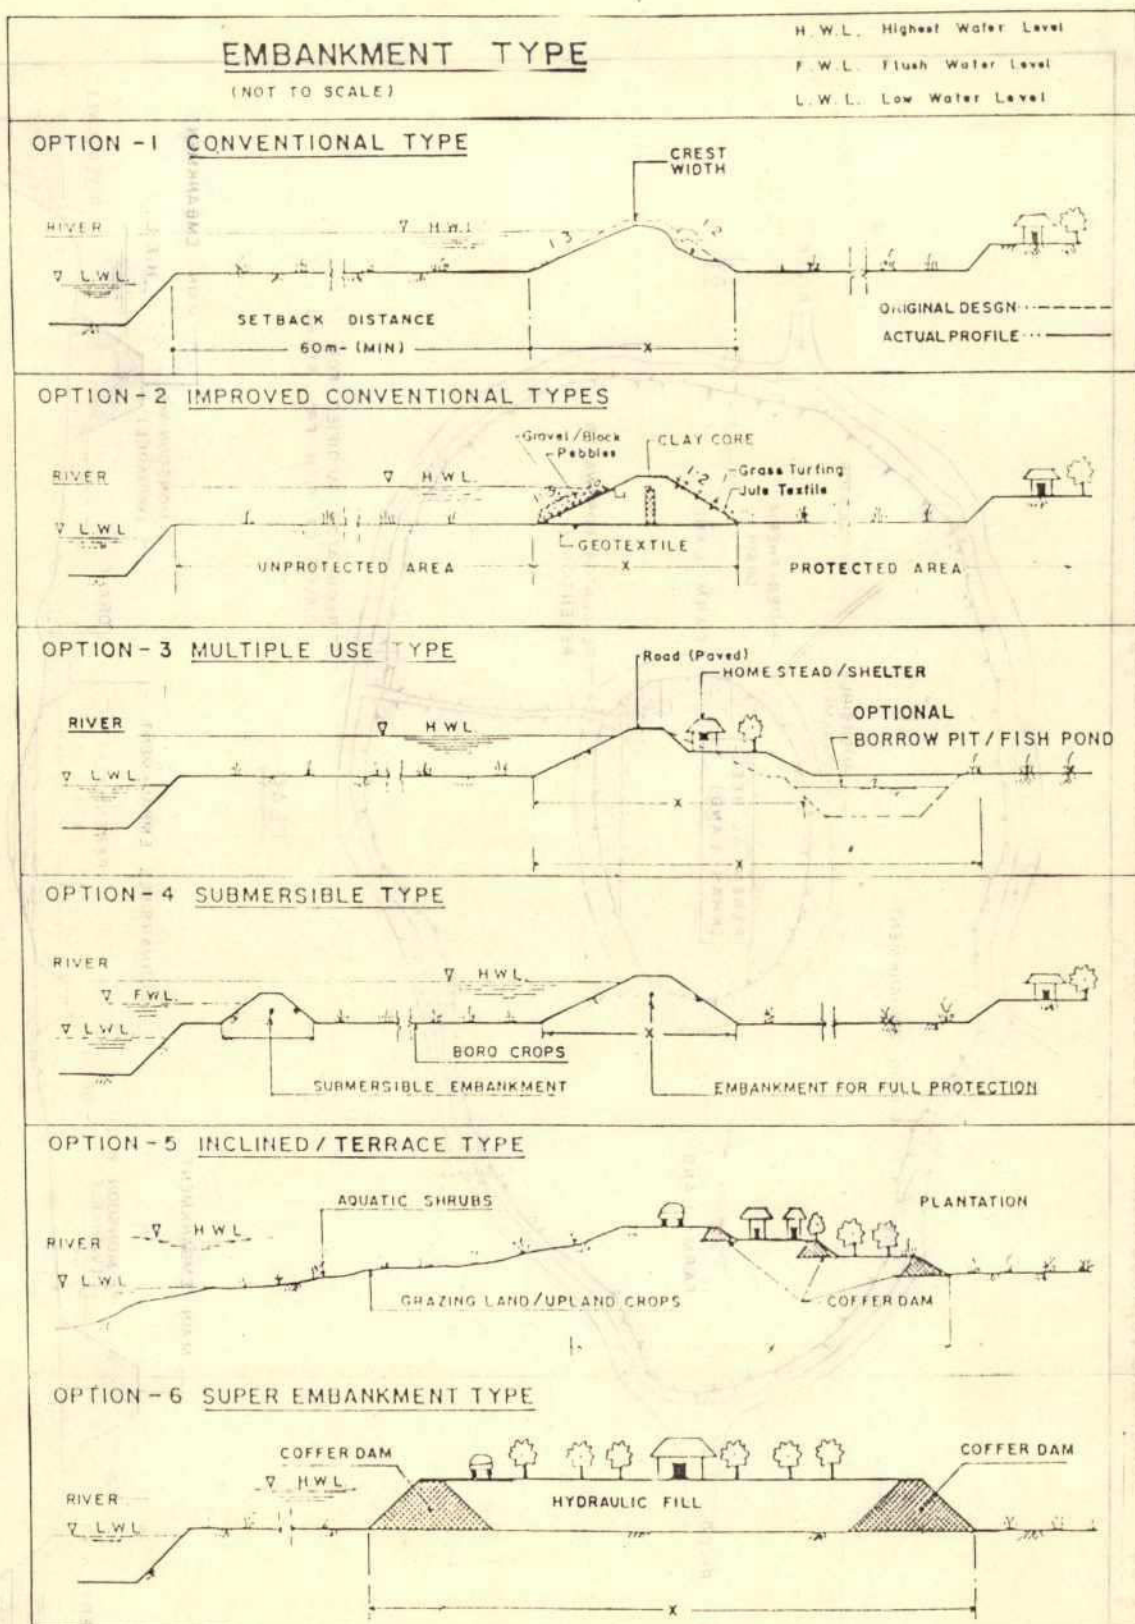 EMBANKMENT TYPE
(NOT TO SCALE)
H.W.L. Highest Water Level
F.W.L. Flush Water Level
L.W.L. Low Water Level
OPTION -1 CONVENTIONAL TYPE
CREST
WIDTH
RIVER
H.W.L
1:3
1:2
L.W.L.
SETBACK DISTANCE
60m- (MIN)
X
ORIGINAL DESGN
ACTUAL PROFILE
OPTION-2 IMPROVED CONVENTIONAL TYPES
Gravel/Block
Pebbles
CLAY CORE
RIVER
H.W.L.
1:2
Grass Turfing
Jute Textile
L.W.L.
GEOTEXTILE
UNPROTECTED AREA
X
PROTECTED AREA
OPTION-3 MULTIPLE USE TYPE
Road (Paved)
HOMESTEAD/SHELTER
RIVER
H.W.L.
OPTIONAL
BORROW PIT/FISH POND
L.W.L.
X
X
OPTION-4 SUBMERSIBLE TYPE
RIVER
H.W.L.
F.W.L.
L.W.L.
X
BORO CROPS
SUBMERSIBLE EMBANKMENT
EMBANKMENT FOR FULL PROTECTION
OPTION-5 INCLINED/TERRACE TYPE
AQUATIC SHRUBS
PLANTATION
H.W.L.
RIVER
L.W.L.
GRAZING LAND/UPLAND CROPS
COFFER DAM
OPTION-6 SUPER EMBANKMENT TYPE
COFFER DAM
COFFER DAM
H.W.L.
RIVER
HYDRAULIC FILL
L.W.L.
X